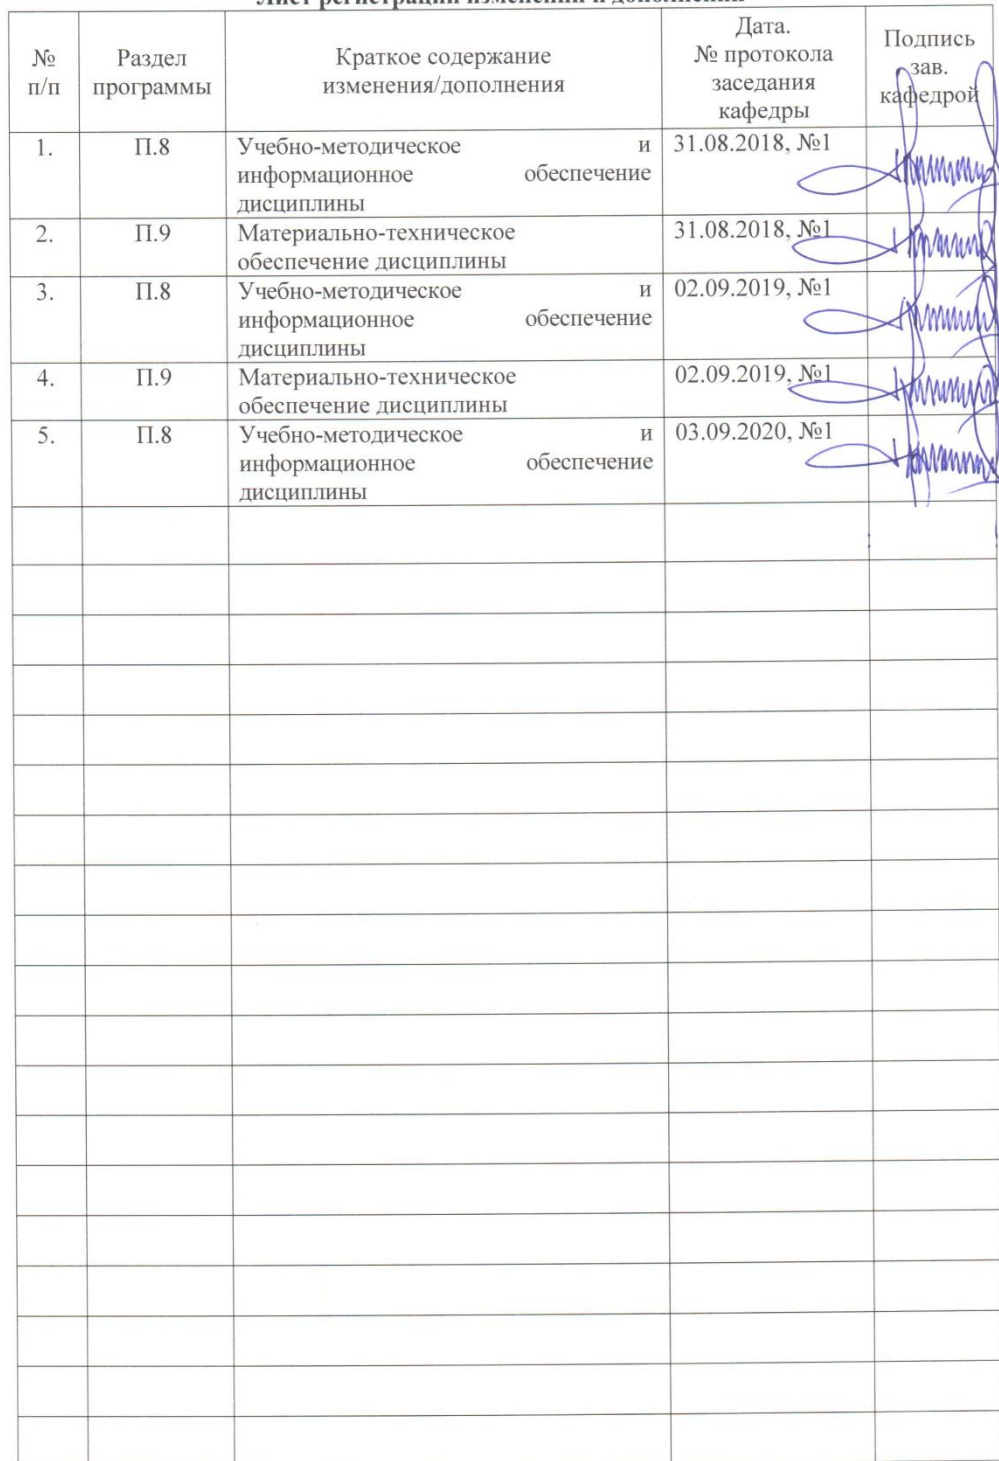 Лист регистрации изменений и дополнений
№ п/п
Раздел программы
Краткое содержание изменения/дополнения
Дата.
№ протокола
заседания
кафедры
Подпись
зав.
кафедрой
1.
П.8
Учебно-методическое и
информационное обеспечение
дисциплины
31.08.2018, №1
2.
П.9
Материально-техническое
обеспечение дисциплины
31.08.2018, №1
3.
П.8
Учебно-методическое и
информационное обеспечение
дисциплины
02.09.2019, №1
4.
П.9
Материально-техническое
обеспечение дисциплины
02.09.2019, №1
5.
П.8
Учебно-методическое и
информационное обеспечение
дисциплины
03.09.2020, №1